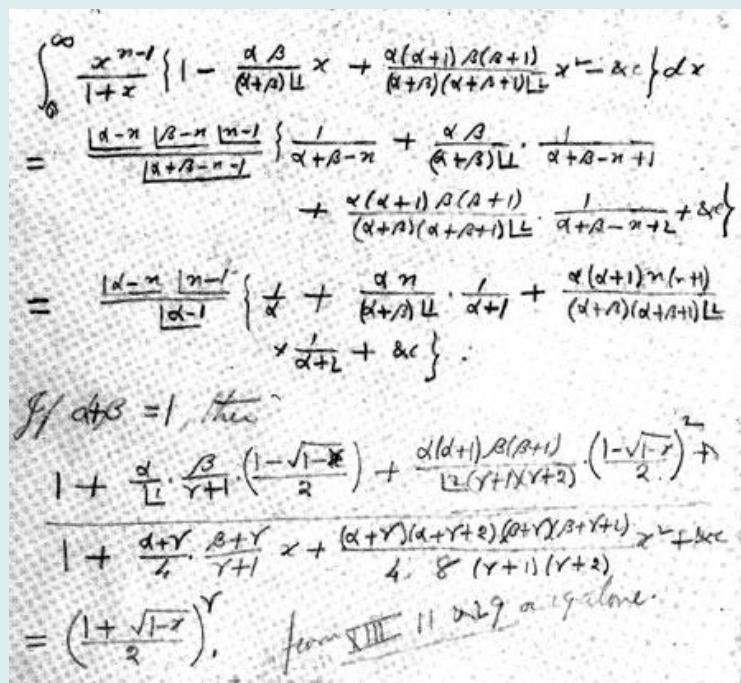 ∫₀^∞ x^{n-1}/(1+x) {1 - αβ/((α+β)|1) x + α(α+1)β(β+1)/((α+β)(α+β+1)|2) x² - &c} dx
= |α-n |β-n |n-1 / |α+β-n-1 {1/(α+β-n) + αβ/((α+β)|1) · 1/(α+β-n+1)
+ α(α+1)β(β+1)/((α+β)(α+β+1)|2) · 1/(α+β-n+2) + &c}
= |α-n |n-1 / |α-1 {1/α + αn/((α+β)|1) · 1/(α+1) + α(α+1)n(n+1)/((α+β)(α+β+1)|2)
× 1/(α+2) + &c}.
If α+β = 1, then
1 + α/|1 · β/(γ+1) · ((1-√(1-x))/2) + α(α+1)β(β+1)/(|2(γ+1)(γ+2)) · ((1-√(1-x))/2)² +
1 + (α+γ)/4 · (β+γ)/(γ+1) x + (α+γ)(α+γ+2)(β+γ)(β+γ+2)/(4·8 (γ+1)(γ+2)) x² + &c
= ((1+√(1-x))/2)^γ. from XIII 11